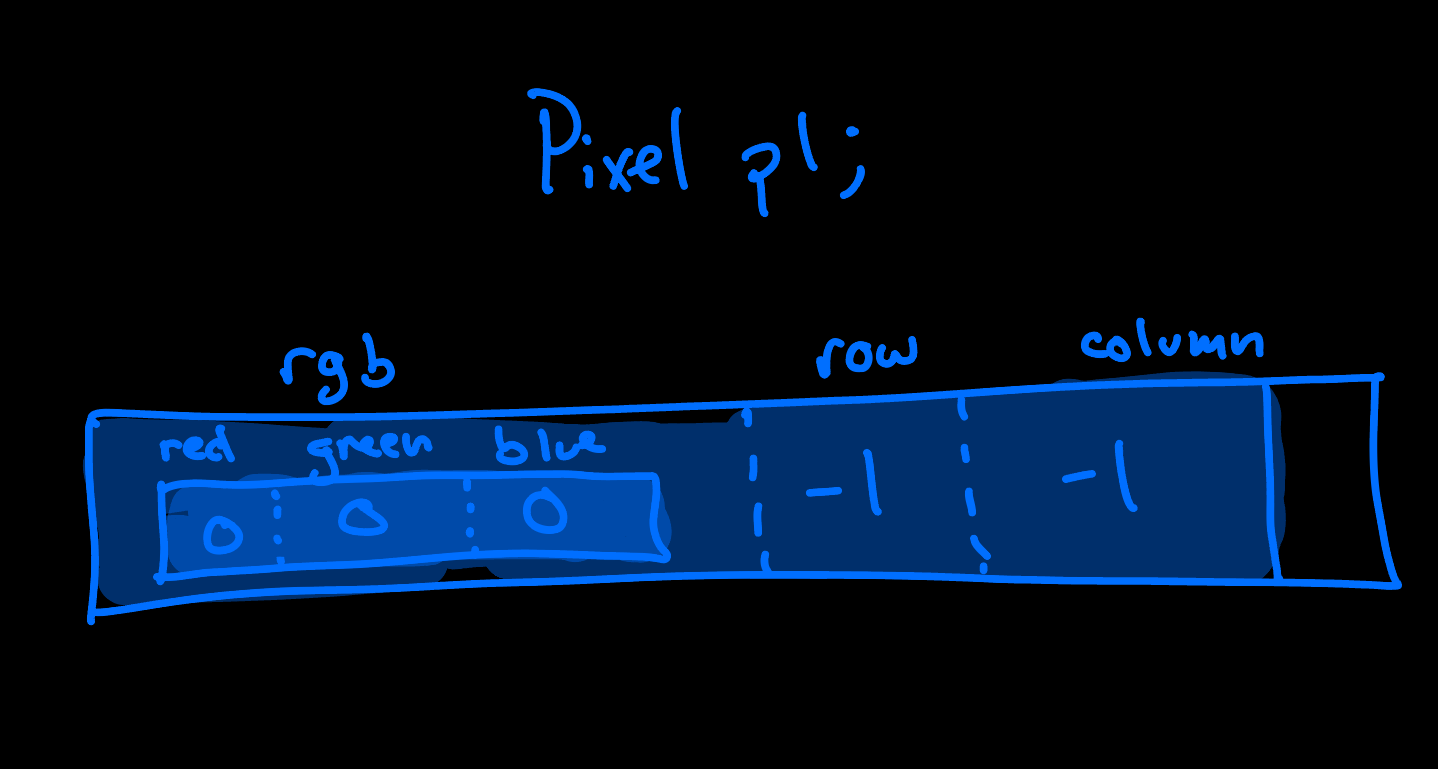 Pixel p1;
rgb row column
red green blue
0 0 0 -1 -1